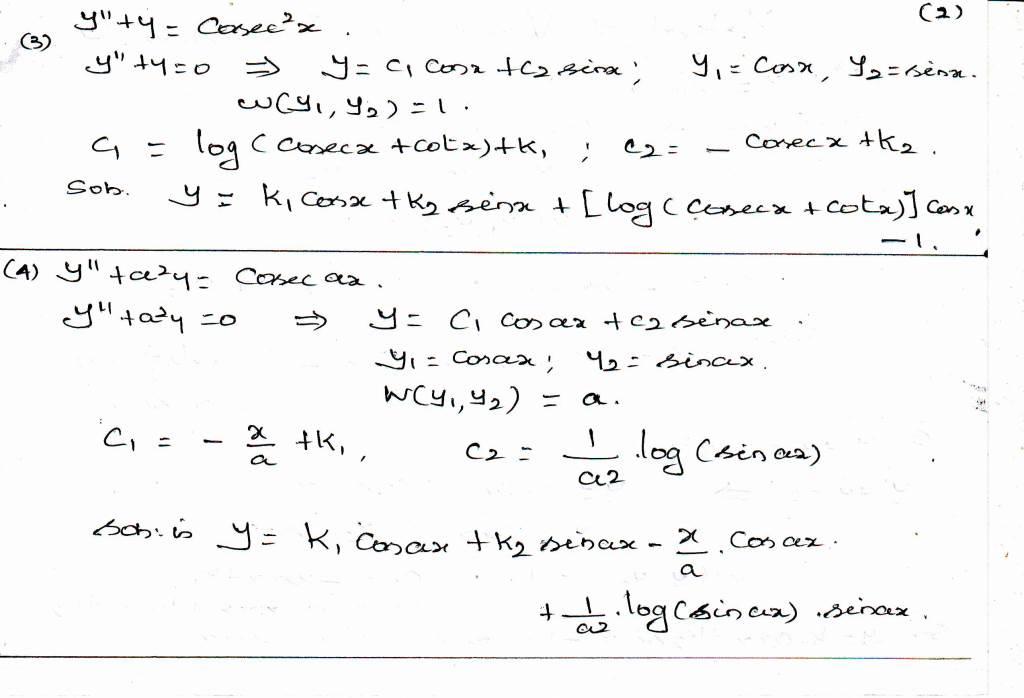 (2)
(3) y'' + y = Cosec²x.
y'' + y = 0 ⇒ y = C₁ Cosx + C₂ sinx; y₁ = Cosx, y₂ = sinx.
W(y₁, y₂) = 1.
C₁ = log (Cosecx + cotx) + K₁ ; C₂ = - Cosecx + K₂.
Soln. y = K₁ Cosx + K₂ sinx + [log (Cosecx + cotx)] Cosx
- 1.
(4) y'' + a²y = Cosec ax.
y'' + a²y = 0 ⇒ y = C₁ Cosax + C₂ sinax.
y₁ = Cosax; y₂ = sinax.
W(y₁, y₂) = a.
C₁ = - x/a + K₁, C₂ = 1/a² . log (sin ax)
Soln. is y = K₁ Cosax + K₂ sinax - x/a . Cosax.
+ 1/a² . log (sin ax) . sinax.